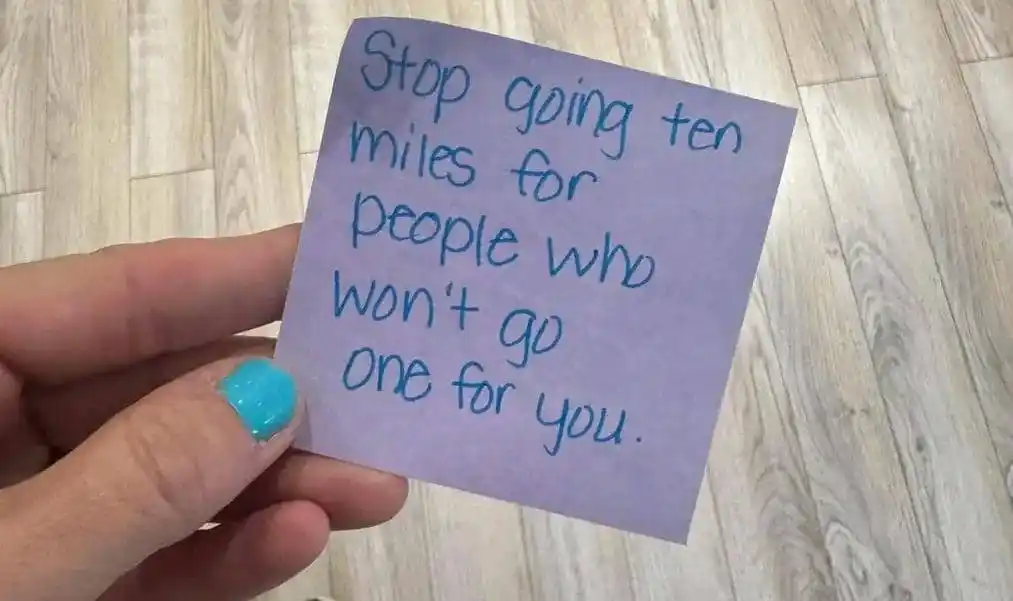 Stop going ten
miles for
people who
won't go
one for you.